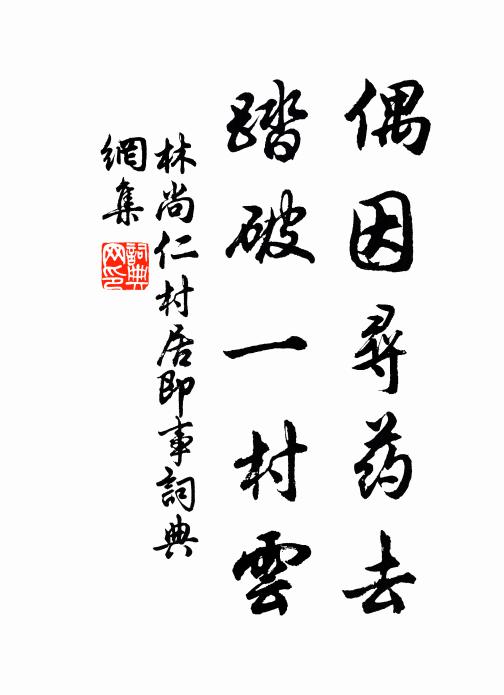 偶因尋药去
踏破一村雲
林尚仁村居即事詞典
網集
詞典
网印